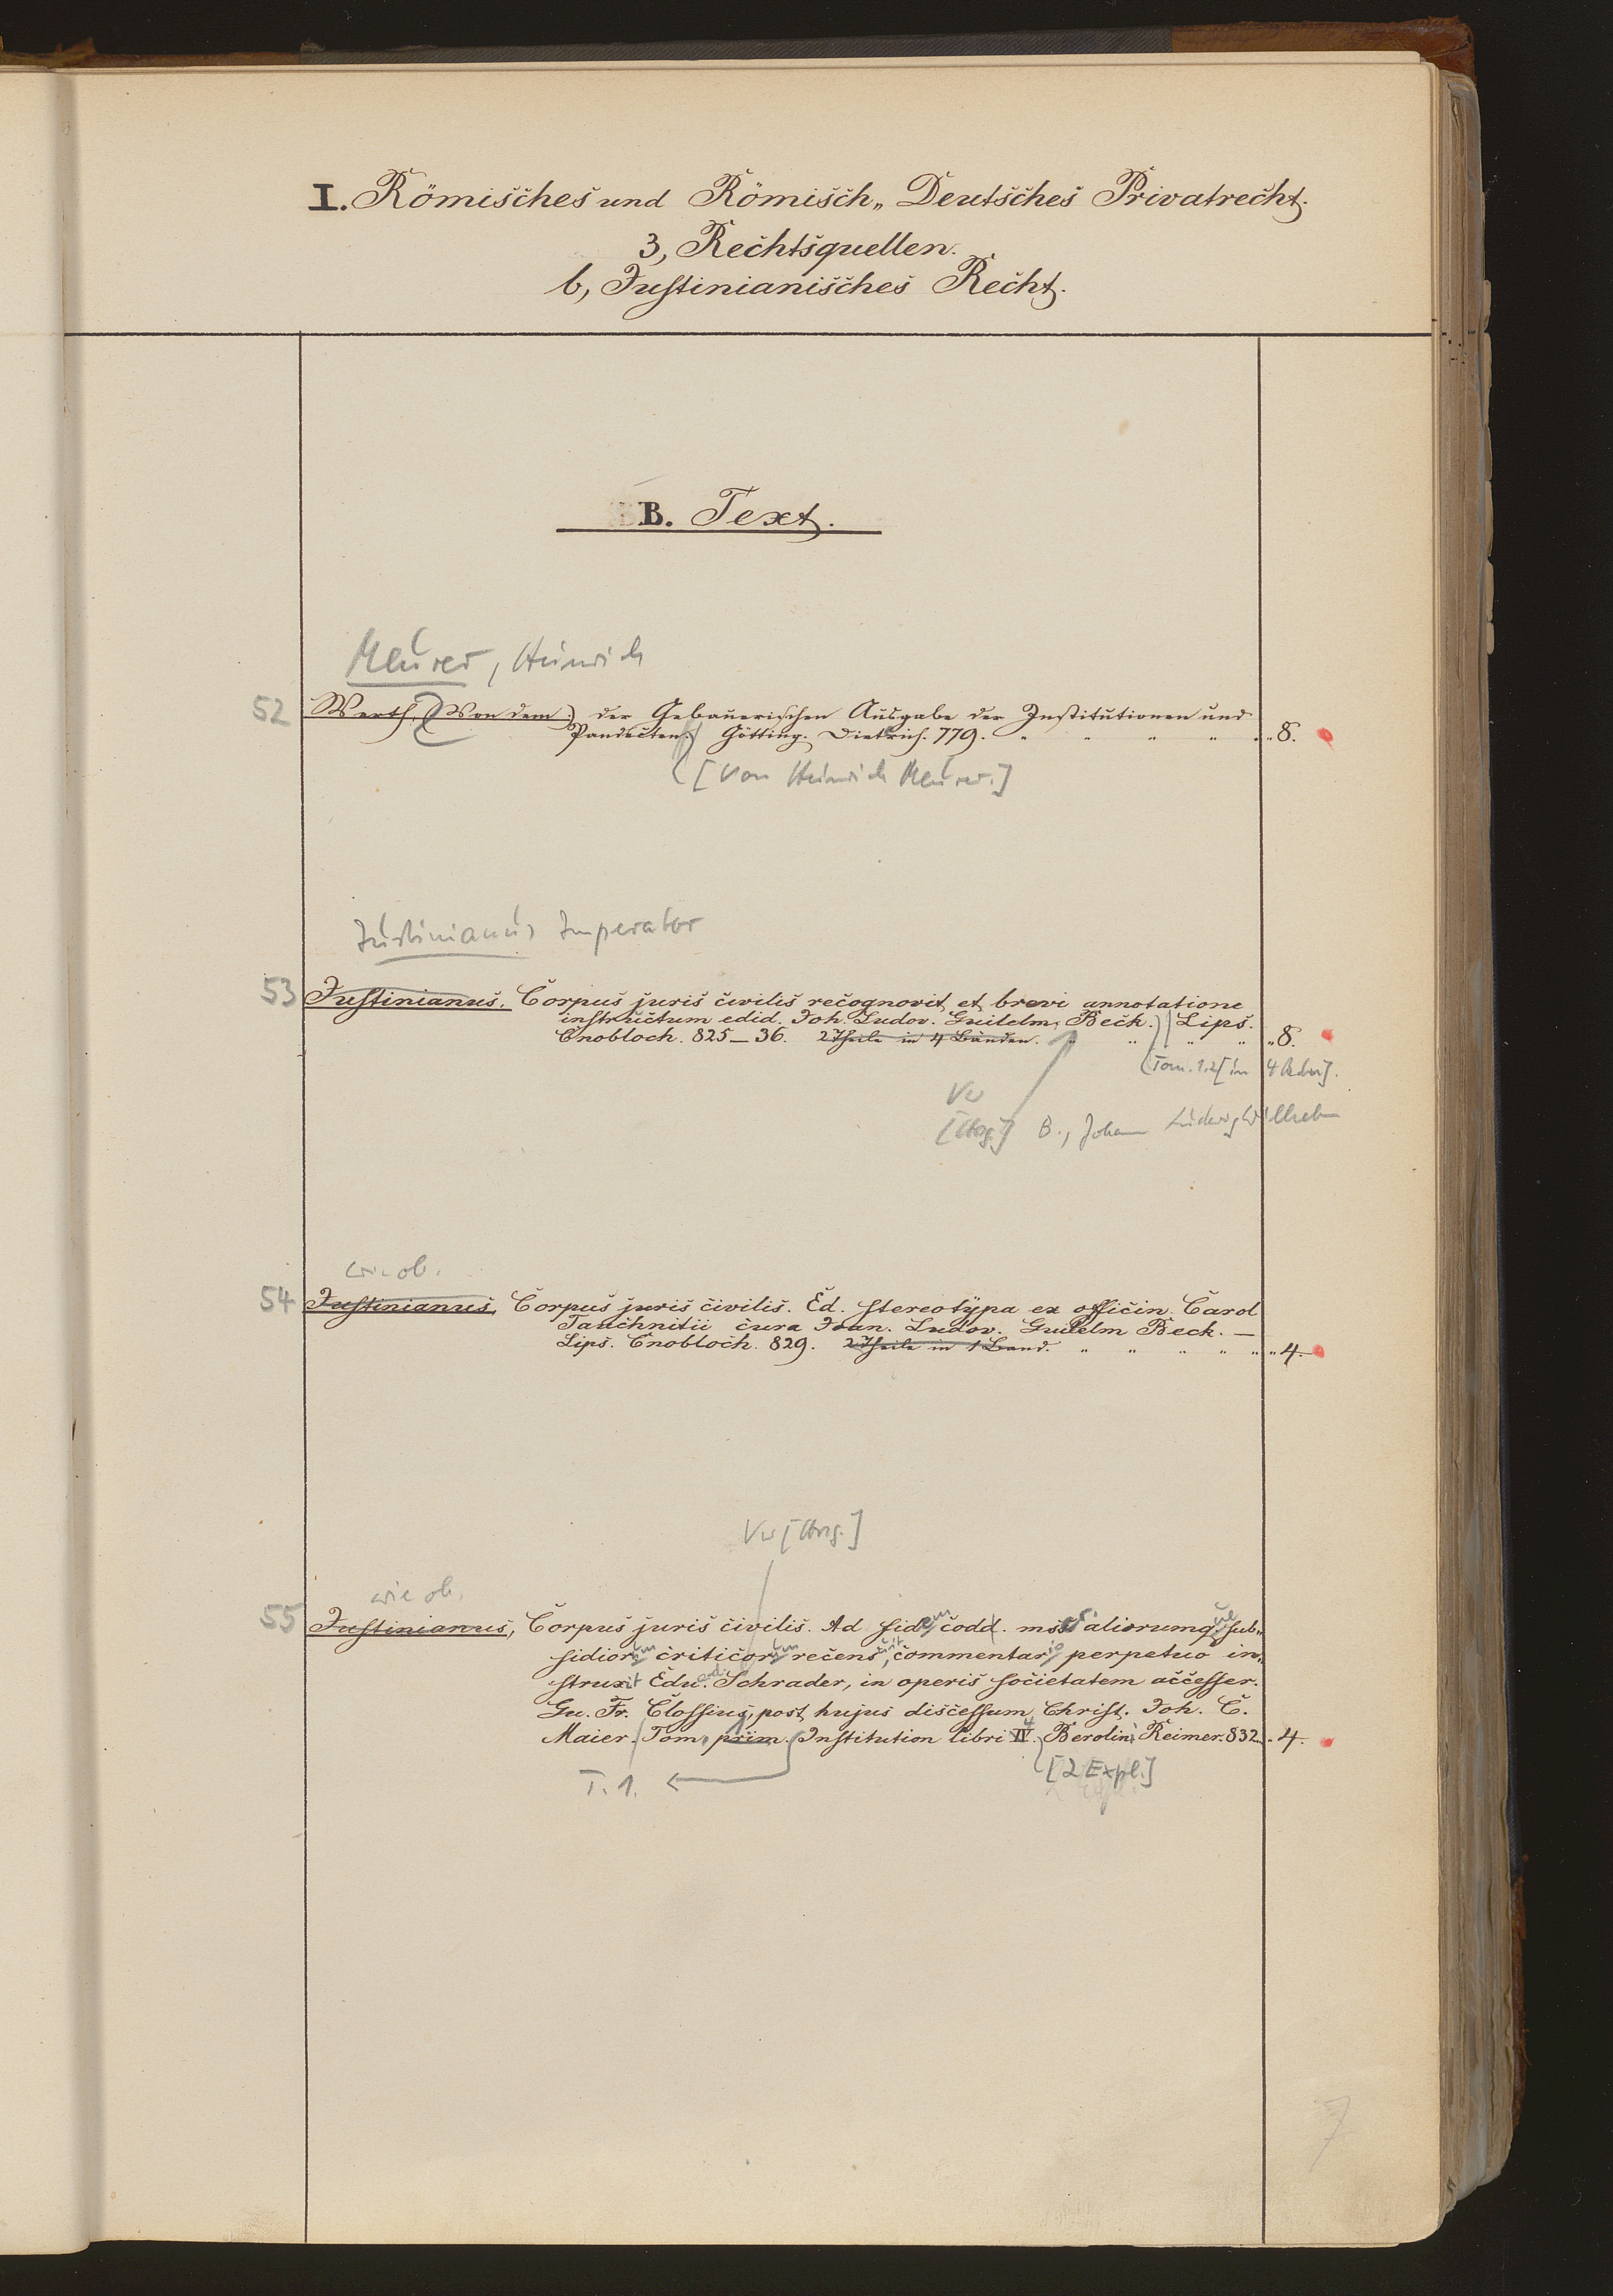 I. Römisches und Römisch„ Deutsches Privatrecht.
3, Rechtsquellen.
b, Justinianisches Recht.
B. Text.
Meurer, Heinrich
52 Werth, (Von dem) der Gebauerischen Ausgabe der Institutionen und
Pandecten. Götting. Dietrich. 779. " " " " " „8.
[Von Heinrich Meurer.]
Justinianus Imperator
53 Justinianus. Corpus juris civilis recognovit et brevi annotatione
instructum edid. Joh. Ludov. Guilelm. Beck. Lips.
Cnobloch. 825–36. 2 Theile in 4 Bänden. " " " " „8.
(Tom. 1.2 [in 4 Bdn].
Vw
[Hrsg.] B., Johann Ludwig Wilhelm
wie ob.
54 Justinianus, Corpus juris civilis. Ed. stereotypa ex officin. Carol
Tauchnitii cura Joan. Ludov. Guilelm Beck. —
Lips. Cnobloch. 829. 2 Theile in 1 Band. " " " " " „4.
Vw [Hrsg.]
wie ob.
55 Justinianus, Corpus juris civilis. Ad fidem codd. mss. aliorumque sub„
sidiorum criticorum recensuit, commentario perpetuo in„
struxit Edu. Schrader, in operis societatem accesser.
Gu. Fr. Clossius, post hujus discessum Christ. Joh. C.
Maier. Tom. prim. Institution libri IV. 4 Berolini Reimer. 832. „4.
T. 1. [2 Expl.]
7